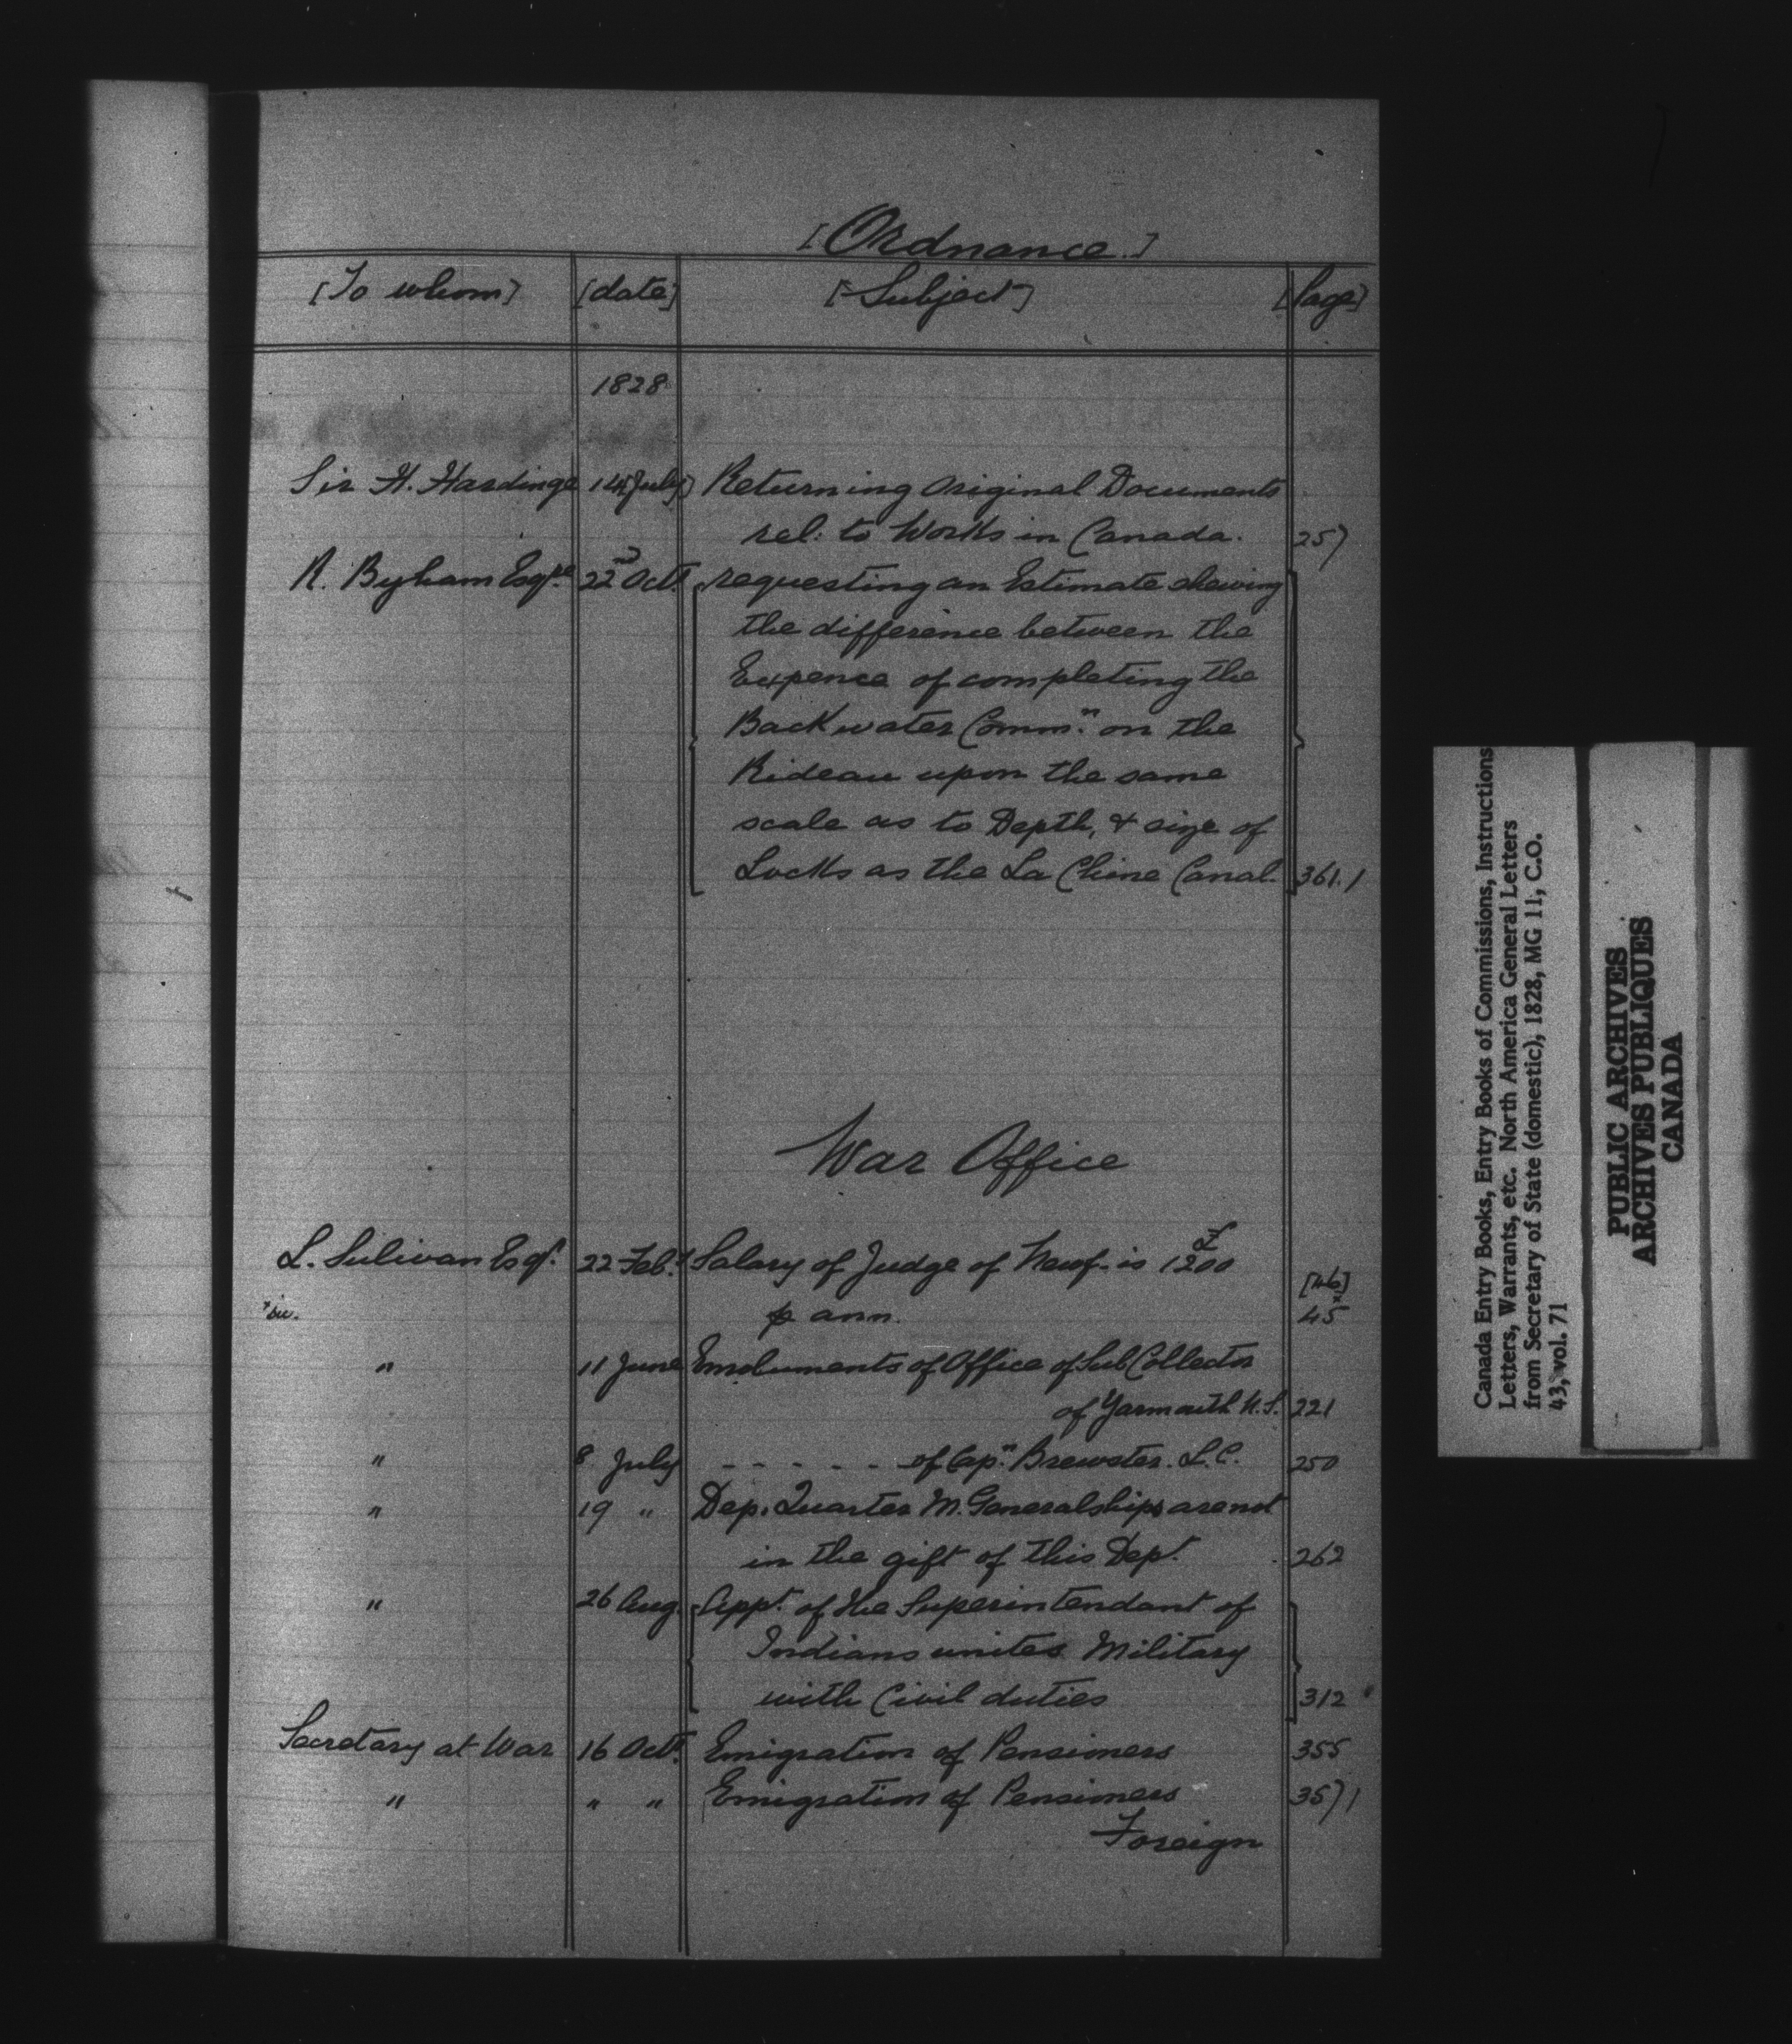 [Ordnance.]
[To whom] [date] [Subject] [Page]
1828
Sir H. Hardinge 14 July) Returning Original Documents
rel: to Works in Canada. 257
R. Byham Esqre. 22d Octr. requesting an Estimate shewing
the difference between the
Expence of completing the
Backwater Commn. on the
Rideau upon the same
scale as to Depth, & size of
Locks as the La Chine Canal. 361.1
War Office
L. Sulivan Esqr. 22 Feby. Salary of Judge of Newf. is £1200
[46]
x sic. p ann. 45x
" 11 June Emoluments of Office of Sub Collector
of Yarmouth N.S. 221
" 8 July - - - - - - of Capn. Brewster. L.C. 250
" 19 " Dep. Quarter M. Generalships are not
in the gift of this Dept. 262
" 26 Aug. Appt. of the Superintendant of
Indians unites Military
with Civil duties 312
Secretary at War 16 Octr. Emigration of Pensioners 355
" " " Emigration of Pensioners 357 1
Foreign
Canada Entry Books, Entry Books of Commissions, Instructions
Letters, Warrants, etc. North America General Letters
from Secretary of State (domestic), 1828, MG 11, C.O.
43, vol. 71
PUBLIC ARCHIVES
ARCHIVES PUBLIQUES
CANADA